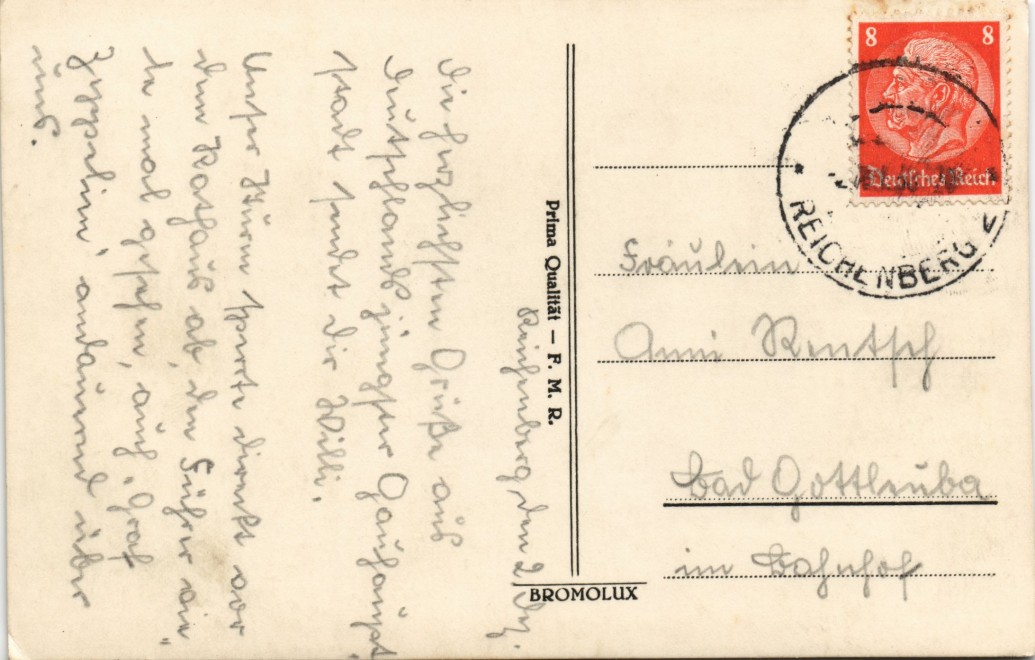 Reichenberg, den 2. Dez.
Die herzlichsten Grüße aus
Deutschlands jüngster Gauhaupt-
stadt sendet dir Willi.
Unser Sturm sperrte direkt vor
dem Rathaus ab, den Führer vie„
le mal gesehen, auch „Graf
Zeppelin“ andauernd über
uns.
Prima Qualität — F. M. R.
BROMOLUX
8 8
Deutsches Reich
REICHENBERG 2
Fräulein
Anni Rentsch
Bad Gottleuba
im Bahnhof